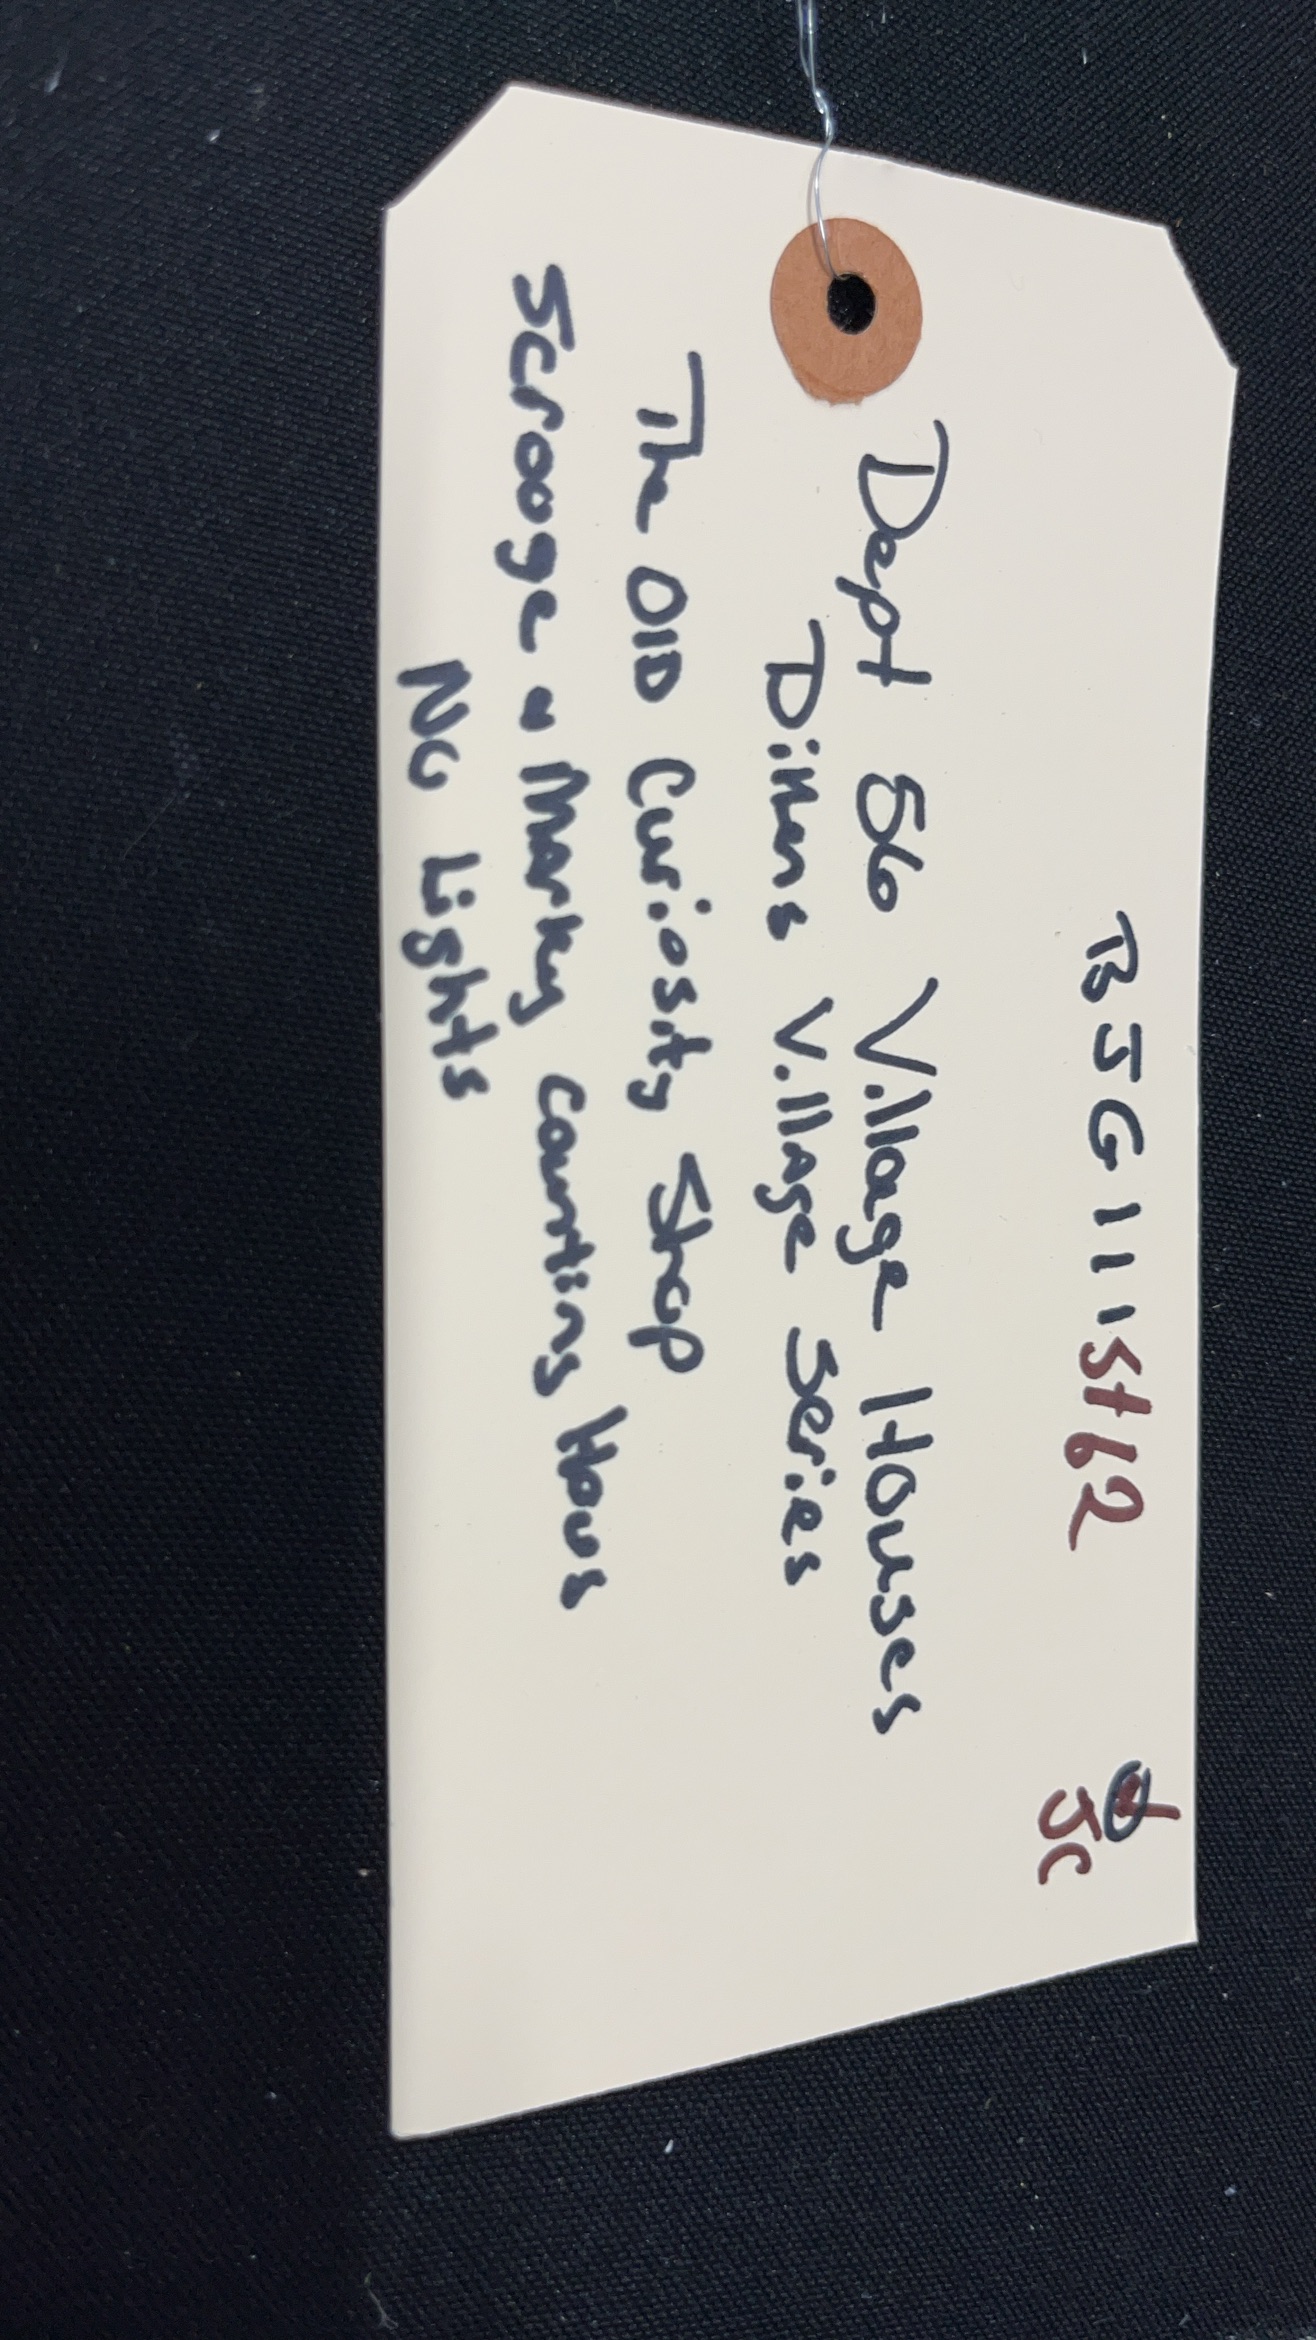 BJG111St62
JC
Dept 56 Village Houses
Dikens Village Series
The OlD Curiosity Shop
Scrooge a Marley Counting Hous
No Lights